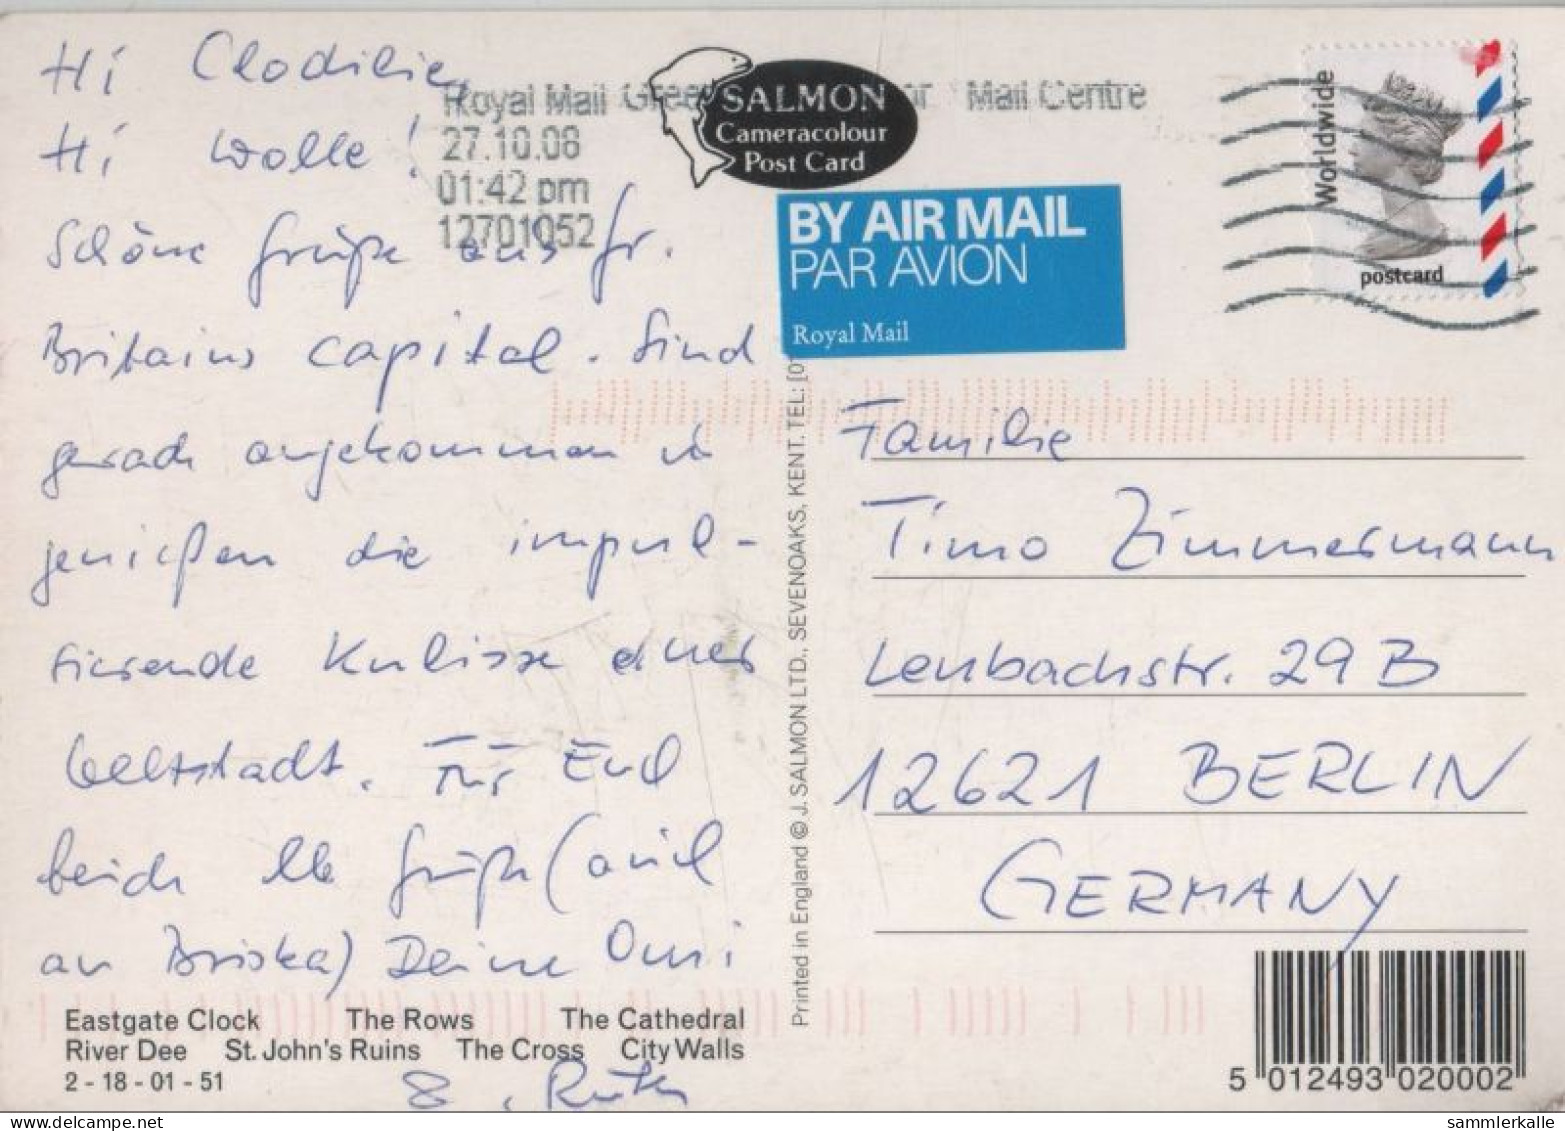 Hi Clodilie,
Hi Wolle!
Schöne Grüße aus Gr.
Britains capital. Sind
gerade angekommen u
genießen die impul-
sierende Kulisse einer
Weltstadt. Für Euch
beide lb Grüße (auch
an Briska) Deine Omi
& Ruth
Royal Mail Mail Centre
27.10.08
01:42 pm
12701052
SALMON
Cameracolour
Post Card
BY AIR MAIL
PAR AVION
Royal Mail
Worldwide
postcard
Familie
Timo Zimmermann
Lenbachstr. 29B
12621 BERLIN
GERMANY
Printed in England © J. SALMON LTD., SEVENOAKS, KENT. TEL: [0
Eastgate Clock The Rows The Cathedral
River Dee St. John's Ruins The Cross City Walls
2 - 18 - 01 - 51
5 012493 020002
sammlerkalle